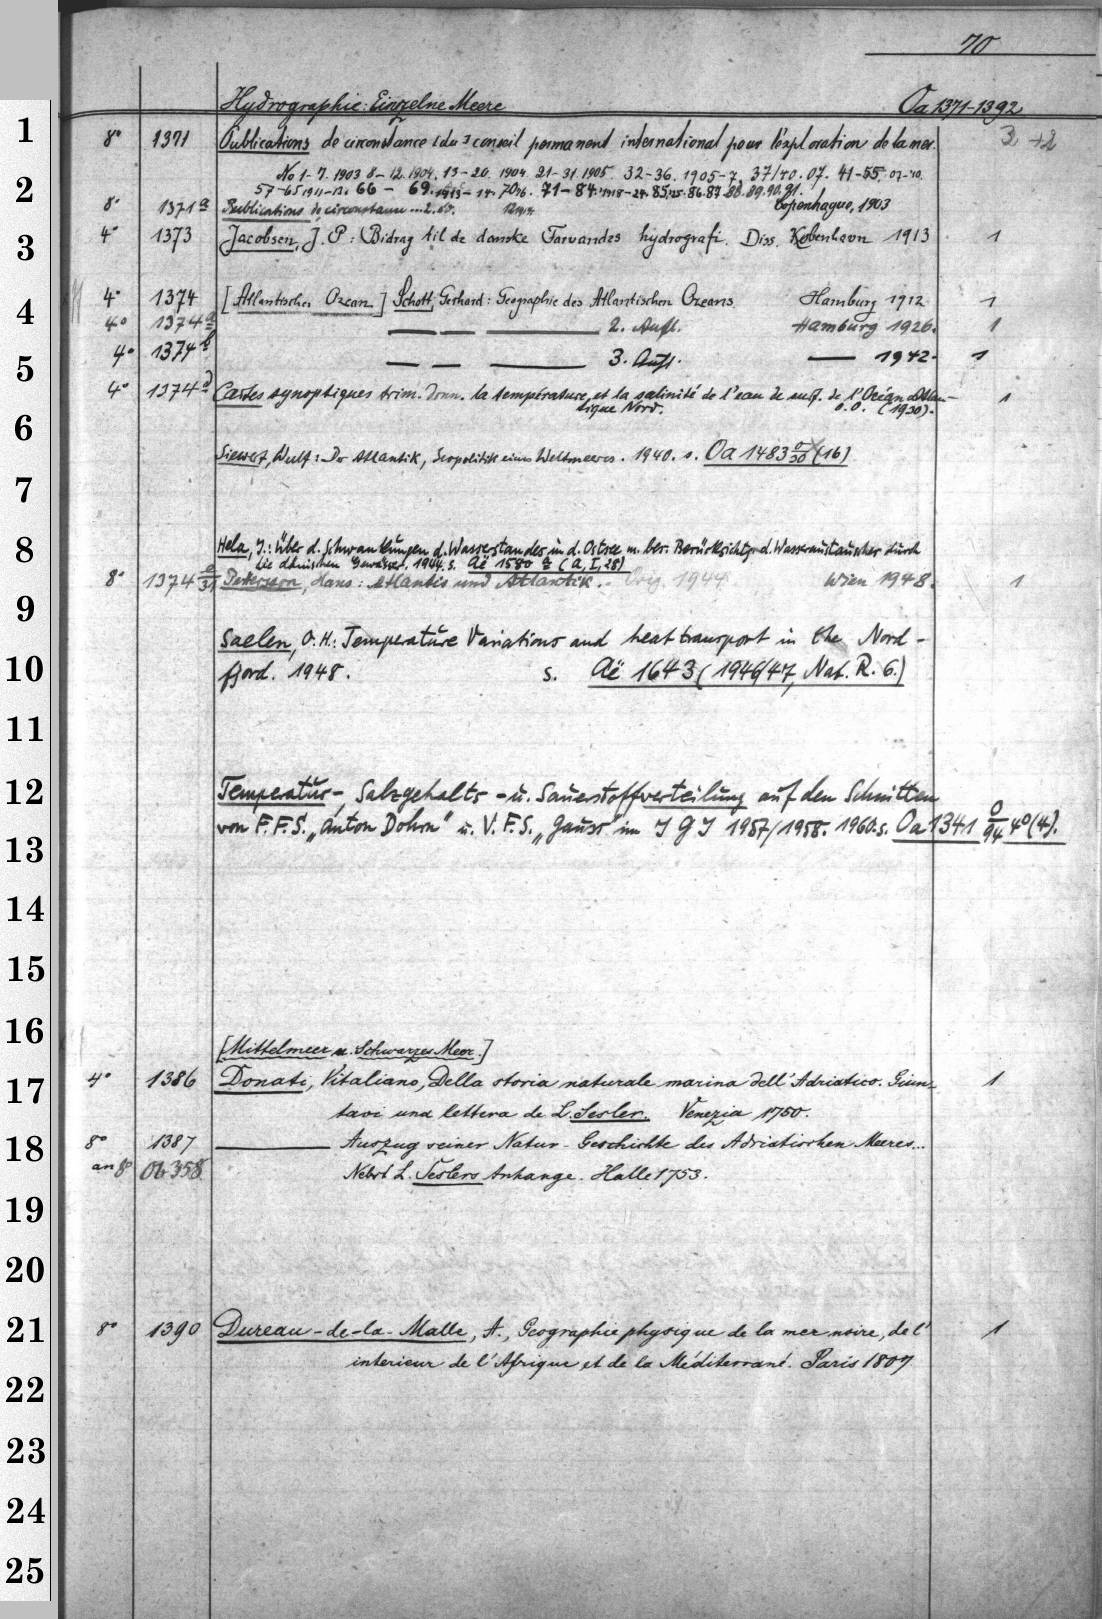 70
Hydrographie: Einzelne Meere Oa 1371-1392
1
8° 1371 Publications de circonstance [du] conseil permanent international pour l'exploration de la mer. 3 +2
No 1-7. 1903 8-12. 1904. 13-20. 1904. 21-31. 1905. 32-36. 1905-7. 37/40. 07. 41-55. 07-10.
2
57-65 1911-13. 66 - 69. 1913-14. 70 16. 71-84. 1918-24. 85. 25. 86. 87. 88. 89. 90. 91.
8° 1371 a Publications de circonstance ... 2. éd. Copenhague, 1903
3
4° 1373 Jacobsen, J. P.: Bidrag til de danske Farvandes hydrografi. Diss. Kobenhavn 1913 1
4
4° 1374 [Atlantischer Ozean] Schott, Gerhard: Geographie des Atlantischen Ozeans Hamburg 1912 1
4° 1374 a — — — 2. Aufl. Hamburg 1926. 1
5
4° 1374 b — — — 3. Aufl. — 1942. 1
4° 1374 d Cartes synoptiques trim. donn. la température et la salinité de l'eau de surf. de l'Océan Atlan-
tique Nord. o. O. (1930). 1
6
Siewert, Wulf: Der Atlantik, Geopolitik eines Weltmeeres. 1940. s. Oa 1483 o/30 (16)
7
8
Hela, J.: Über d. Schwankungen d. Wasserstandes in d. Ostsee m. bes. Berücksichtg. d. Wasseraustausches durch
die dänischen Gewässer. 1944. s. Aë 1580 a (A, I, 28)
8° 1374 a/31 Pettersson, Hans: Atlantis und Atlantik. Orig. 1944 Wien 1948. 1
9
Saelen, O. H.: Temperature Variations and heat transport in the Nord-
10
fjord. 1948. s. Aë 1643 (1946/47, Nat. R. 6.)
11
12
Temperatur-, Salzgehalts- u. Sauerstoffverteilung auf den Schnitten
von F.F.S. „Anton Dohrn" u. V.F.S. „Gauss" im IGJ 1957/1958. 1960. s. Oa 1341 o/94 4° (4).
13
14
15
16
[Mittelmeer u. Schwarzes Meer.]
17
4° 1386 Donati, Vitaliano, Della storia naturale marina dell'Adriatico. Giun-
tavi una lettera de L. Sesler. Venezia 1750. 1
18
8° 1387 ——— Auszug seiner Natur-Geschichte des Adriatischen Meeres...
an 8° Ob 358 Nebst L. Seslers Anhange. Halle 1753.
19
20
21
8° 1390 Dureau-de-la-Malle, A., Geographie physique de la mer noire, de l' 1
interieur de l'Afrique et de la Méditerrané. Paris 1807
22
23
24
25